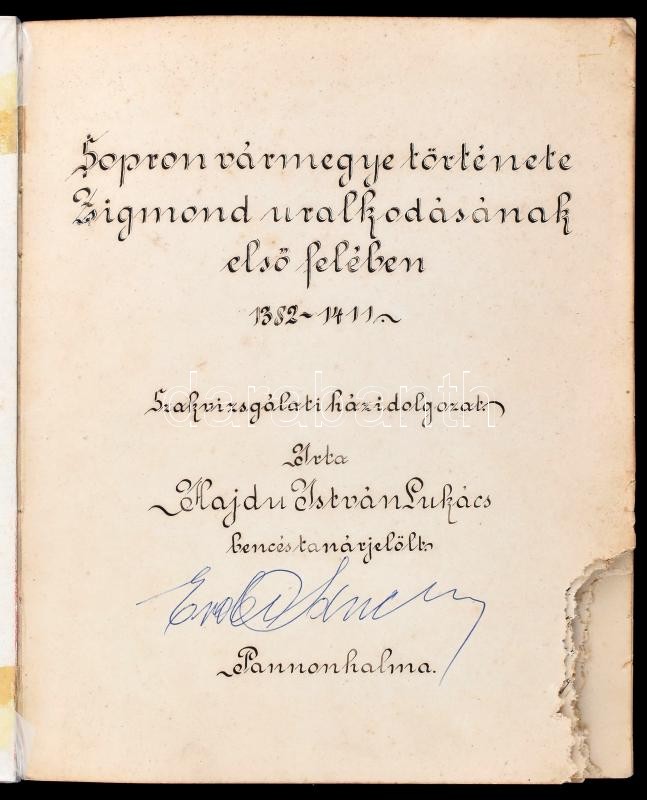 Sopron vármegye története
Zsigmond uralkodásának
első felében
1382-1411.
darabanth
Szakvizsgálati házidolgozat.
Irta
Hajdu István Lukács
bencés tanárjelölt
Pannonhalma.